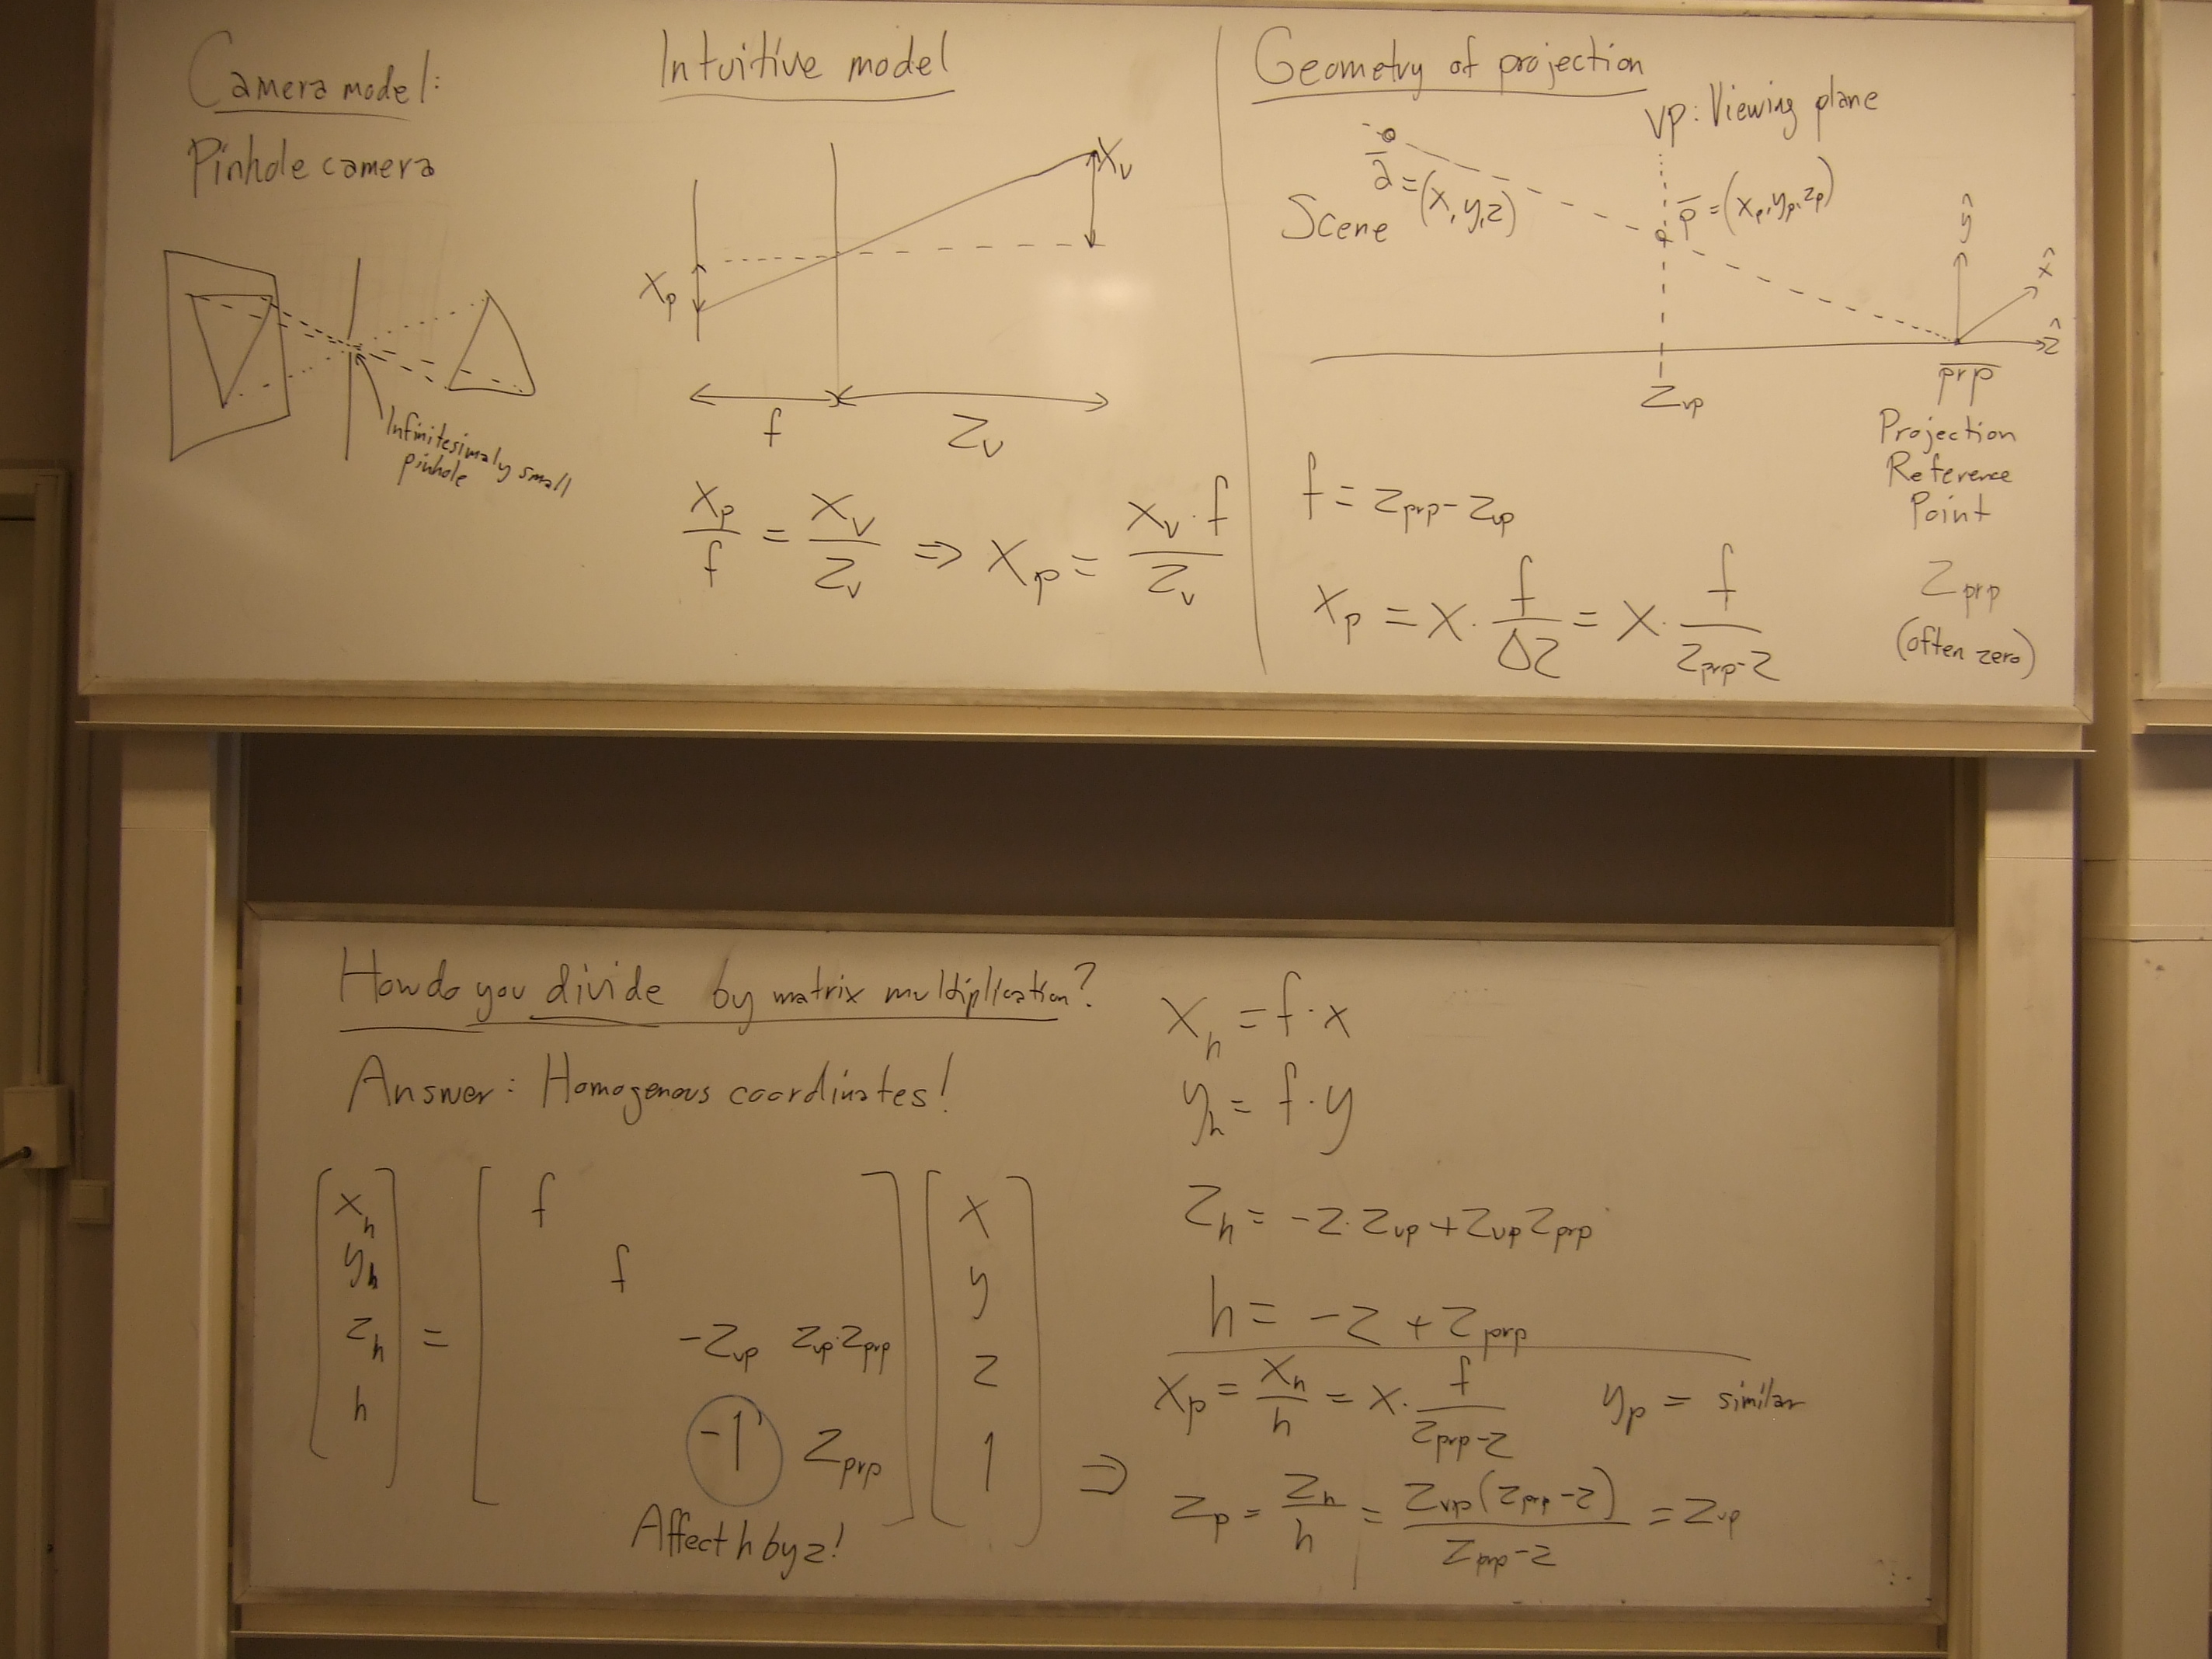 Camera model:
Pinhole camera
Infinitesimaly small
pinhole
Intuitive model
X_v
X_p
f
Z_v
X_p/f = X_v/Z_v ⇒ X_p = X_v·f/Z_v
Geometry of projection
VP: Viewing plane
a̅ = (x, y, z)
p̅ = (x_p, y_p, z_p)
Scene
ŷ
x̂
ẑ
Z_vp
prp
Projection
Reference
Point
Z_prp
(often zero)
f = z_prp - z_vp
X_p = X · f/Δz = X · f/(z_prp - z)
How do you divide by matrix multiplication?
Answer: Homogenous coordinates!
[x_h y_h z_h h] = [f; f; -z_vp z_vp·z_prp; -1 z_prp] [x y z 1] ⇒
Affect h by z!
X_h = f·x
y_h = f·y
Z_h = -z·z_vp + z_vp z_prp
h = -z + z_prp
X_p = X_h/h = X · f/(z_prp - z) y_p = similar
Z_p = Z_h/h = Z_vp(z_prp - z)/(z_prp - z) = z_vp